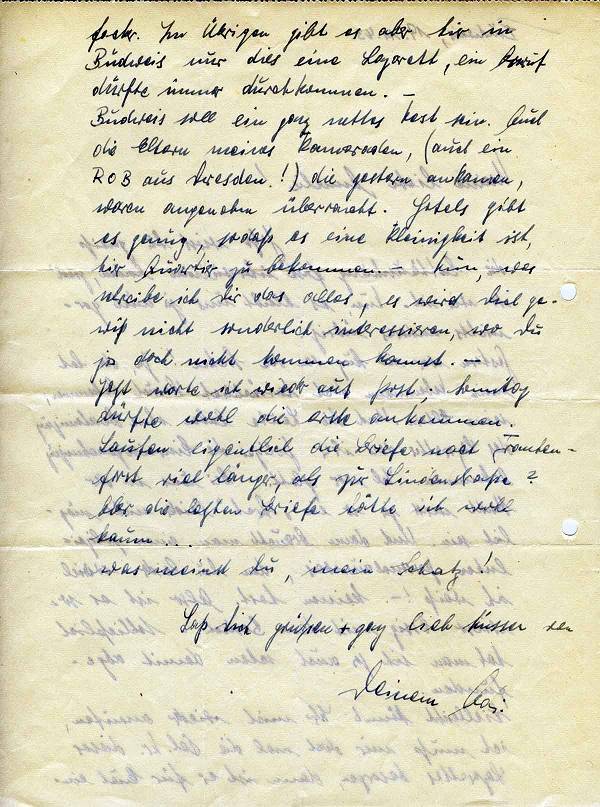 Im Übrigen gibt es aber hier in
Budweis nur dies eine Lazarett, ein
dürfte immer durchkommen. —
Budweis soll ein ganz nettes Nest sein. Auch
die Eltern meines Kameraden, (auch ein
ROB aus Dresden!) die gestern ankamen,
waren angenehm überrascht. Hotels gibt
es genug, sodaß es eine Kleinigkeit ist,
hier Quartier zu bekommen. — Nun, was
schreibe ich Dir das alles, es wird Dich ge-
wiß nicht sonderlich interessieren, wo Du
ja doch nicht kommen kannst. —
Jetzt warte ich wieder auf Post, Sonntag
dürfte wohl die erste ankommen.
Laufen eigentlich die Briefe nach Trauten-
first viel länger, als zur Lindenstraße?
Aber die letzten Briefe hätte ich wohl
kaum ...
was meinst Du, mein Schatz!
Laß Dich grüßen + ganz lieb küssen von
Deinem